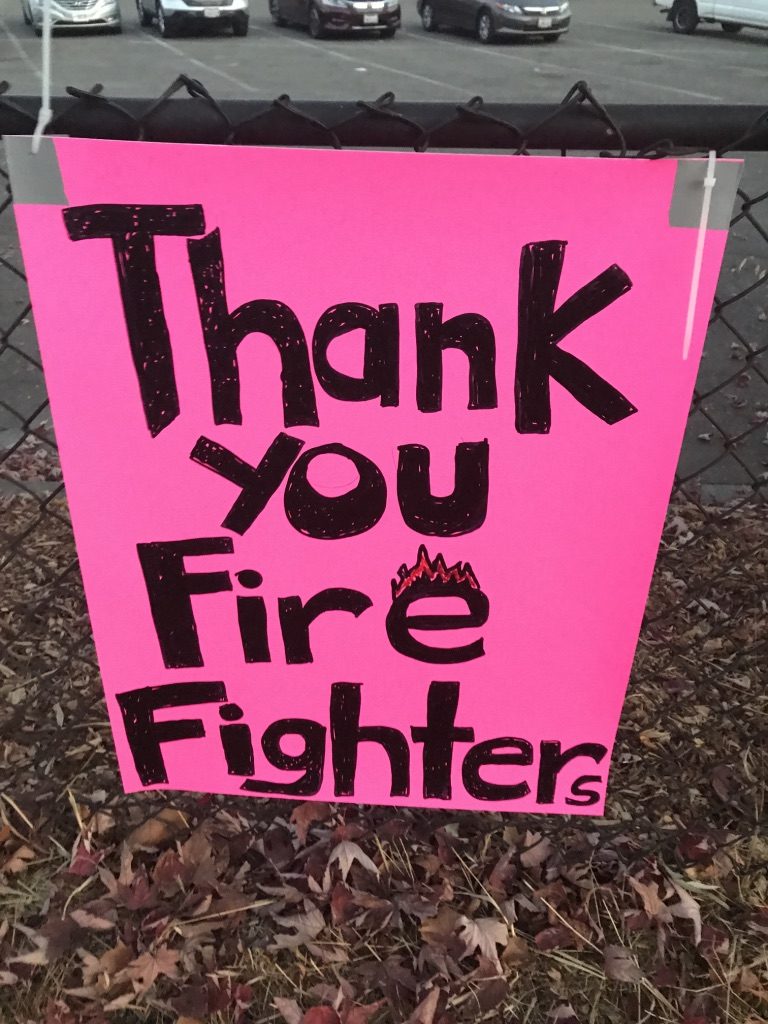 Thank
you
Fire
Fighters